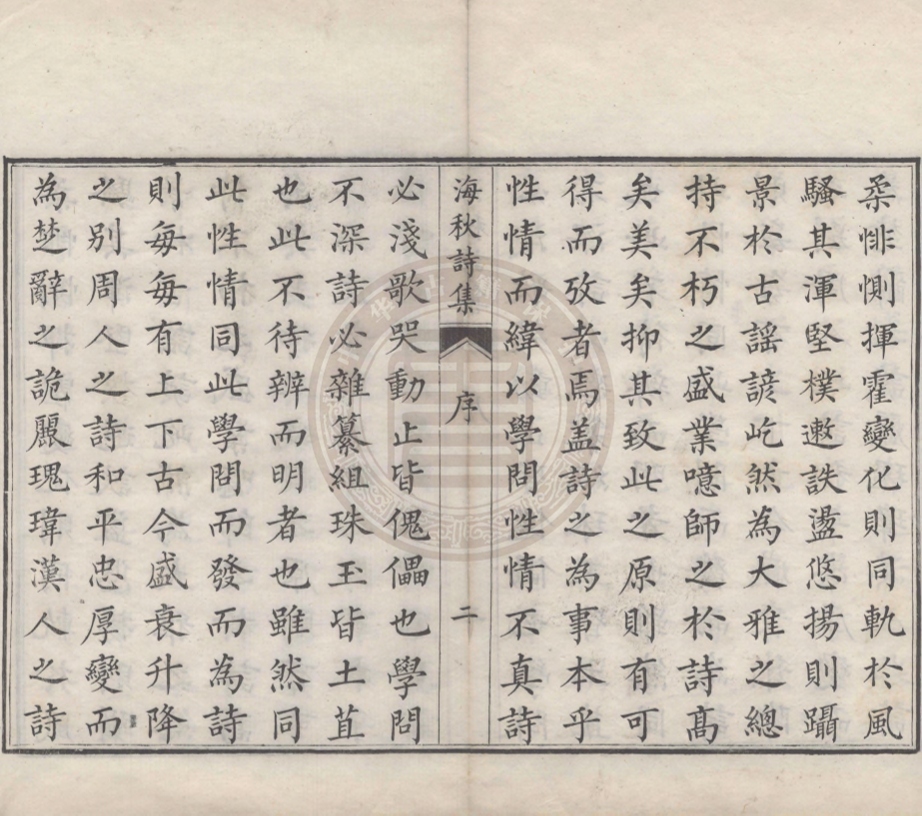 柔悱惻揮霍變化則同軌於風
騷其渾堅樸遬詄盪悠揚則躡
景於古謡諺屹然為大雅之總
持不朽之盛業噫師之於詩髙
矣美矣抑其致此之原則有可
得而攷者焉盖詩之為事本乎
性情而緯以學問性情不真詩
海秋詩集 序 二
必淺歌哭動止皆傀儡也學問
不深詩必雜纂組珠玉皆土苴
也此不待辨而明者也雖然同
此性情同此學問而發而為詩
則每每有上下古今盛衰升降
之別周人之詩和平忠厚變而
為楚辭之詭麗瑰瑋漢人之詩